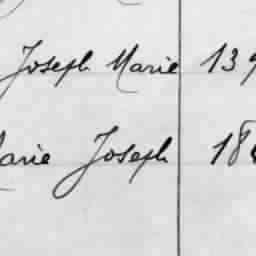 Joseph Marie 139
Marie Joseph 18